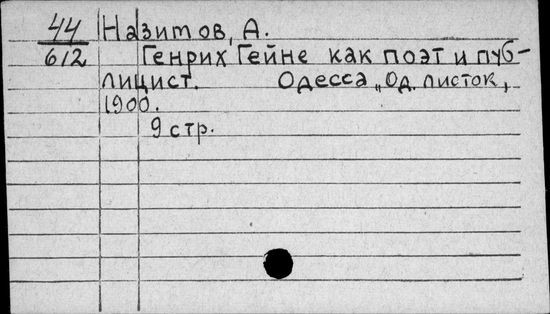 44 Назимов, А.
612 Генрих Гейне как поэт и пуб-
лицист. Одесса „Од. листок,
1900.
9 стр.